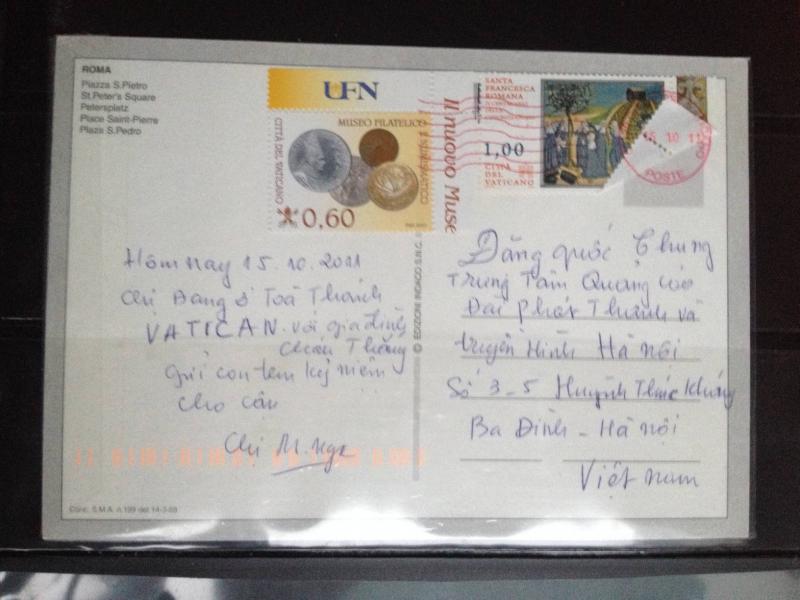 ROMA
Piazza S.Pietro
St.Peter's Square
Petersplatz
Place Saint-Pierre
Plaza S.Pedro
UFN
MUSEO FILATELICO
E NUMISMATICO
CITTÀ DEL VATICANO
0,60
Il nuovo Muse
SANTA
FRANCESCA
ROMANA
1,00
CITTÀ
DEL
VATICANO
15 10 11
POSTE
Hôm nay 15.10.2011
chị đang ở Toà Thánh
VATICAN với gia đình
cháu Thắng
Gửi con tem kỷ niệm
cho cậu
Chị M. Nga
© EDIZIONI INDACO S.N.C.
Đặng quốc Chung
Trung Tâm Quảng cáo
Đài phát Thanh và
truyền Hình Hà Nội
Số 3-5 Huỳnh Thúc Kháng
Ba Đình - Hà nội
Việt nam
Conc. S.M.A. n.199 del 14-3-89